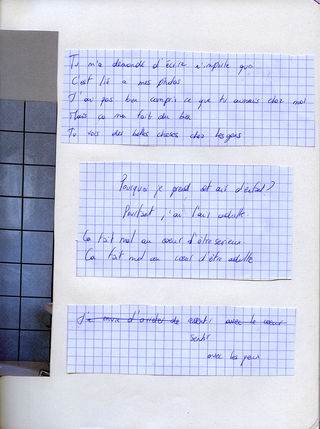 Tu m'a demandé d'écrire n'importe quoi
C'est lié a mes photos
J'ai pas bien compris ce que tu aimais chez moi
Mais ca me fait du bien
Tu vois des belles choses chez les gens
Pourquoi je prend cet air d'enfant?
Pourtant, j'ai l'air adulte.
Ca fait mal au coeur d'être serieux
Ca fait mal au coeur d'être adulte
J'ai envie d'arrêter de avec le coeur
sentir
avec les yeux